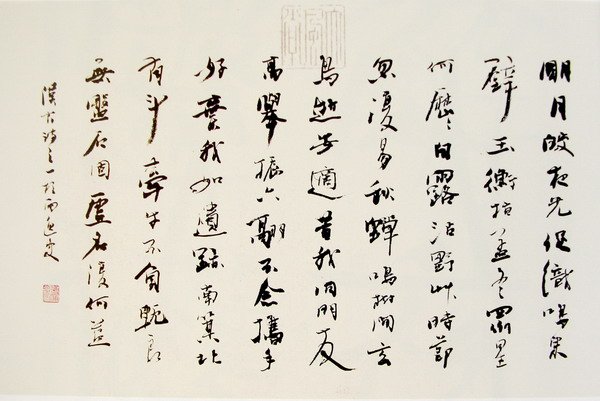 明月皎夜光促織鳴東
壁玉衡指孟冬眾星
何歷〻白露沾野艸時節
忽復易秋蟬鳴樹間玄
鳥逝安適昔我同門友
高舉振六翮不念攜手
好棄我如遺跡南箕北
有斗牽牛不負軛良
無盤石固虛名復何益
漢古詩之一